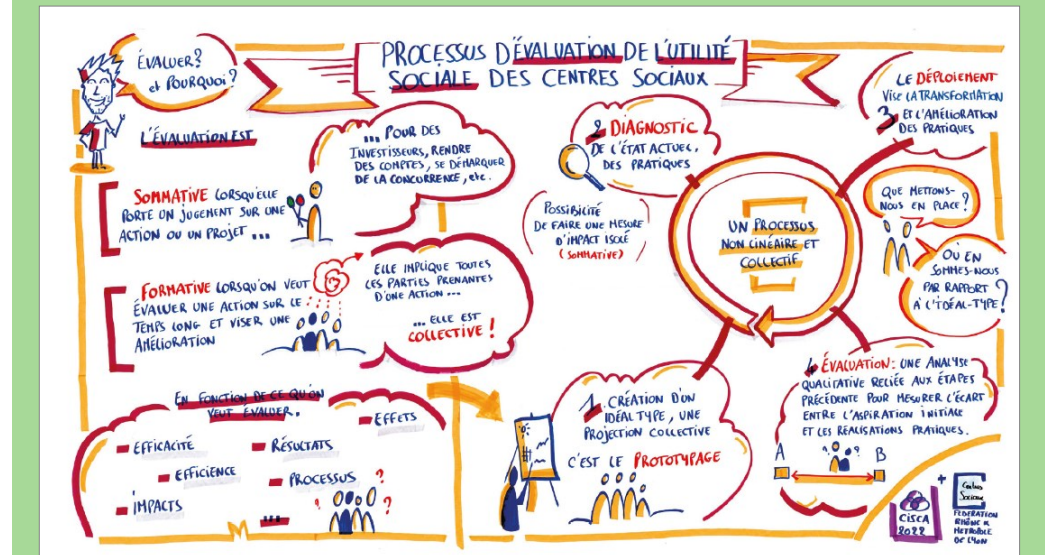 PROCESSUS D'ÉVALUATION DE L'UTILITÉ
SOCIALE DES CENTRES SOCIAUX
ÉVALUER ?
et POURQUOI ?
L'ÉVALUATION EST
SOMMATIVE LORSQU'ELLE
PORTE UN JUGEMENT SUR UNE
ACTION OU UN PROJET ...
... POUR DES
INVESTISSEURS, RENDRE
DES COMPTES, SE DÉMARQUER
DE LA CONCURRENCE, etc.
FORMATIVE LORSQU'ON VEUT
ÉVALUER UNE ACTION SUR LE
TEMPS LONG ET VISER UNE
AMÉLIORATION
ELLE IMPLIQUE TOUTES
LES PARTIES PRENANTES
D'UNE ACTION ...
... ELLE EST
COLLECTIVE !
EN FONCTION DE CE QU'ON
VEUT ÉVALUER.
EFFICACITÉ
EFFICIENCE
IMPACTS
RÉSULTATS
PROCESSUS
EFFETS
...
? ? ?
1. CRÉATION D'UN
IDÉAL TYPE, UNE
PROJECTION COLLECTIVE
C'EST LE PROTOTYPAGE
2 DIAGNOSTIC
DE L'ÉTAT ACTUEL
DES PRATIQUES
POSSIBILITÉ
DE FAIRE UNE MESURE
D'IMPACT ISOLÉ
(SOMMATIVE)
UN PROCESSUS
NON LINÉAIRE ET
COLLECTIF
LE DÉPLOIEMENT
VISE LA TRANSFORMATION
3 ET L'AMÉLIORATION
DES PRATIQUES
QUE METTONS-
NOUS EN PLACE ?
OÙ EN
SOMMES-NOUS
PAR RAPPORT
À L'IDÉAL-TYPE ?
4 ÉVALUATION : UNE ANALYSE
QUALITATIVE RELIÉE AUX ÉTAPES
PRÉCÉDENTE POUR MESURER L'ÉCART
ENTRE L'ASPIRATION INITIALE
ET LES RÉALISATIONS PRATIQUES.
A B
CISCA
2022
+
Centres
Sociaux
FEDERATION
RHÔNE &
METROPOLE
DE LYON